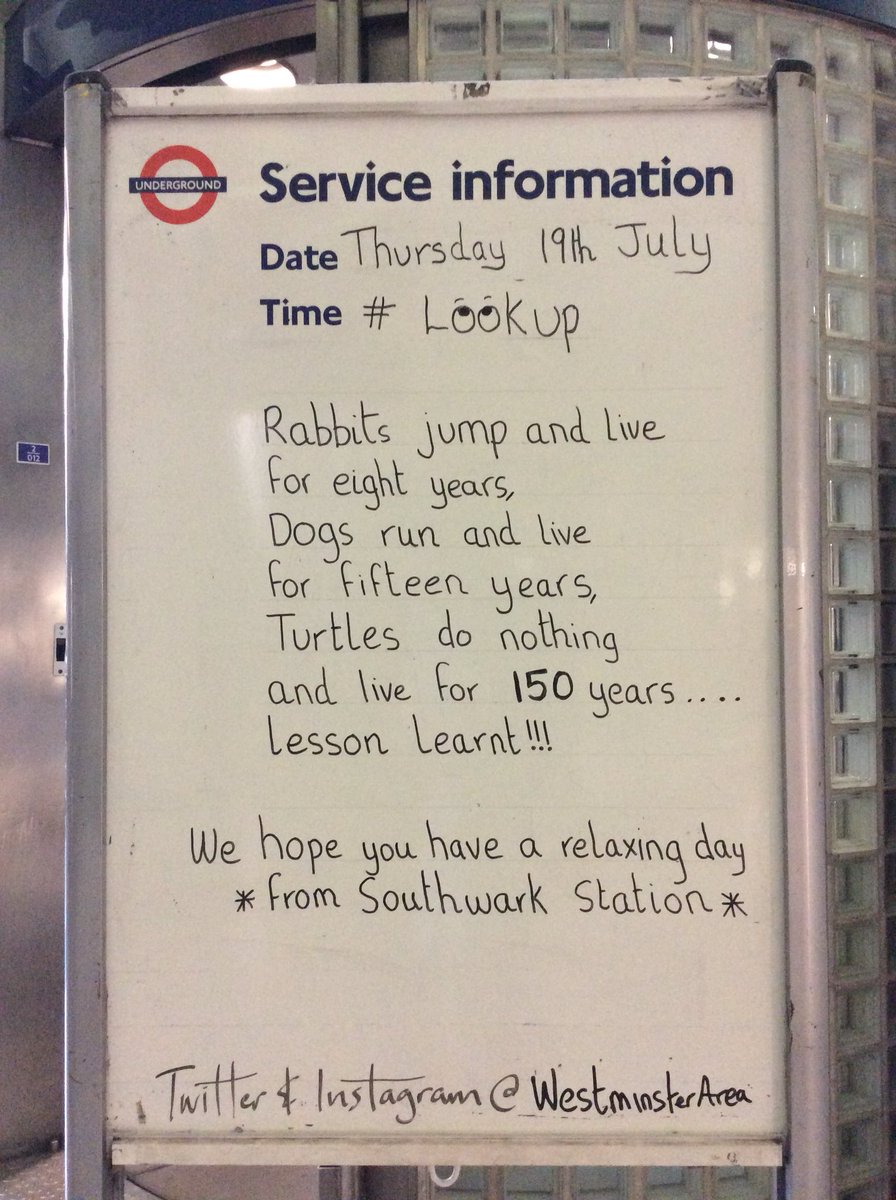 UNDERGROUND
Service information
Date Thursday 19th July
Time # Look up
Rabbits jump and live
for eight years,
Dogs run and live
for fifteen years,
Turtles do nothing
and live for 150 years....
lesson learnt!!!
We hope you have a relaxing day
* from Southwark Station *
Twitter & Instagram @ WestminsterArea
2
012